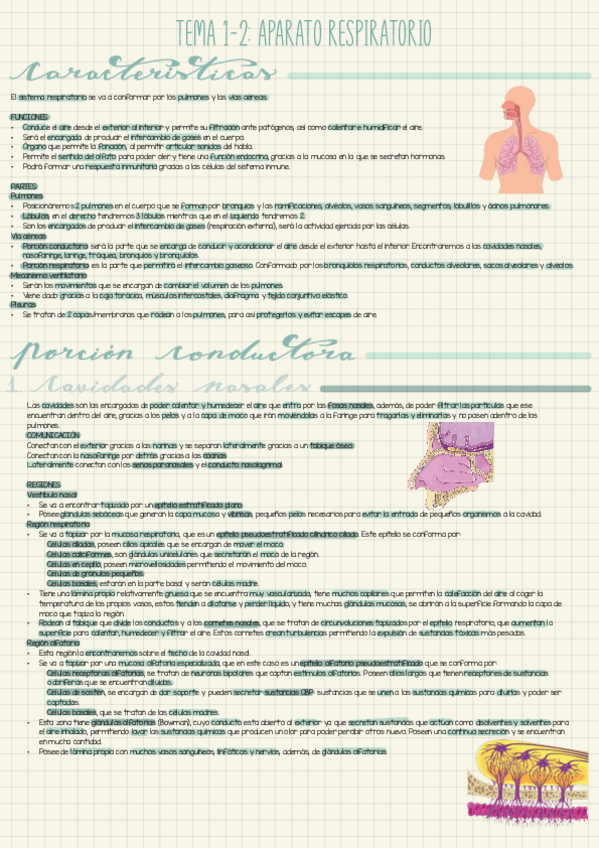 TEMA 1-2: APARATO RESPIRATORIO
Características
El sistema respiratorio se va a conformar por los pulmones y las vías aéreas.
FUNCIONES:
• Conduce el aire desde el exterior al interior y permite su filtración ante patógenos, así como calentar e humidificar el aire.
• Será el encargado de producir el intercambio de gases en el cuerpo.
• Órgano que permite la fonación, al permitir articular sonidos del habla.
• Permite el sentido del olfato para poder oler y tiene una función endocrina, gracias a la mucosa en la que se secretan hormonas.
• Podrá formar una respuesta inmunitaria gracias a las células del sistema inmune.
PARTES:
Pulmones
• Posicionaremos 2 pulmones en el cuerpo que se forman por bronquios y las ramificaciones, alvéolos, vasos sanguíneos, segmentos, lobulillos y ácinos pulmonares.
• Lóbulos, en el derecho tendremos 3 lóbulos mientras que en el izquierdo tendremos 2.
• Son los encargados de producir el intercambio de gases (respiración externa), será la actividad ejercida por las células.
Vía aéreas
• Porción conductora será la parte que se encarga de conducir y acondicionar el aire desde el exterior hasta el interior. Encontraremos a las cavidades nasales,
nasofaringe, laringe, tráquea, bronquios y bronquiolos.
• Porción respiratoria es la parte que permitirá el intercambio gaseoso. Conformada por los bronquiolos respiratorios, conductos alveolares, sacos alveolares y alvéolos
Mecanismo ventilatorio
• Serán los movimientos que se encargan de cambiar el volumen de los pulmones
• Viene dado gracias a la caja torácica, músculos intercostales, diafragma y tejido conjuntivo elástico.
Pleuras
• Se tratan de 2 capas/membranas que rodean a los pulmones, para así protegerlos y evitar escapes de aire
Porción conductora
1. Cavidades nasales
Las cavidades son las encargadas de poder calentar y humedecer el aire que entra por las fosas nasales, además, de poder filtrar las partículas que ese
encuentran dentro del aire, gracias a los pelos y a la capa de moco que irán moviéndolas a la Faringe para tragarlas y eliminarlas y no pasen adentro de los
pulmones.
COMUNICACIÓN:
Conectan con el exterior gracias a las narinas y se separan lateralmente gracias a un tabique óseo.
Conectan con la nasofaringe por detrás gracias a las coanas
Lateralmente conectan con los senos paranasales y el conducto nasolagrimal
REGIONES:
Vestíbulo nasal
• Se va a encontrar tapizado por un epitelio estratificado plano.
• Posee glándulas sebáceas que generan la capa mucosa y vibrisas, pequeños pelos necesarios para evitar la entrada de pequeños organismos a la cavidad.
Región respiratoria
• Se va a tapizar por la mucosa respiratoria, que es un epitelio pseudoestratificado cilíndrico ciliado. Este epitelio se conforma por
Células ciliadas, poseen cilios apicales que se encargan de mover el moco.
Células caliciformes, son glándulas unicelulares que secretarán el moco de la región.
Células en cepillo, poseen microvellosidades permitiendo el movimiento del moco.
Células de gránulos pequeños.
Células basales, estarán en la parte basal y serán células madre.
• Tiene una lámina propia relativamente gruesa que se encuentra muy vascularizada, tiene muchos capilares que permiten la calefacción del aire al coger la
temperatura de los propios vasos, estos tienden a dilatarse y perder líquido, y tiene muchas glándulas mucosas, se abrirán a la superficie formando la capa de
moco que tapiza la región.
• Rodean al tabique que divide los conductos y a los cornetes nasales, que se tratan de circunvoluciones tapizados por el epitelio respiratorio, que aumentan la
superficie para calentar, humedecer y filtrar el aire. Estos cornetes crean turbulencias permitiendo la expulsión de sustancias tóxicas más pesadas.
Región olfatoria
• Esta región la encontraremos sobre el techo de la cavidad nasal.
• Se va a tapizar por una mucosa olfatoria especializada, que en este caso es un epitelio olfatorio pseudoestratificado que se conforma por
Células receptoras olfatorias, se tratan de neuronas bipolares que captan estímulos olfatorios. Poseen cilios largos que tienen receptores de sustancias
odoríferas que se encuentran diluidas.
Células de sostén, se encargan de dar soporte y pueden secretar sustancias OBP, sustancias que se unen a las sustancias químicas para diluirlas y poder ser
captadas.
Células basales, que se tratan de las células madres.
• Esta zona tiene glándulas olfatorias (Bowman), cuyo conducto esta abierto al exterior ya que secretan sustancias que actúan como disolventes y solventes para
el aire inhalado, permitiendo lavar las sustancias químicas que producen un olor para poder perabir otros nuevo. Poseen una continua secreción y se encuentran
en mucha cantidad.
• Posee de lámina propia con muchos vasos sanguíneos, linfáticos y nervios, además, de glándulas olfatorias